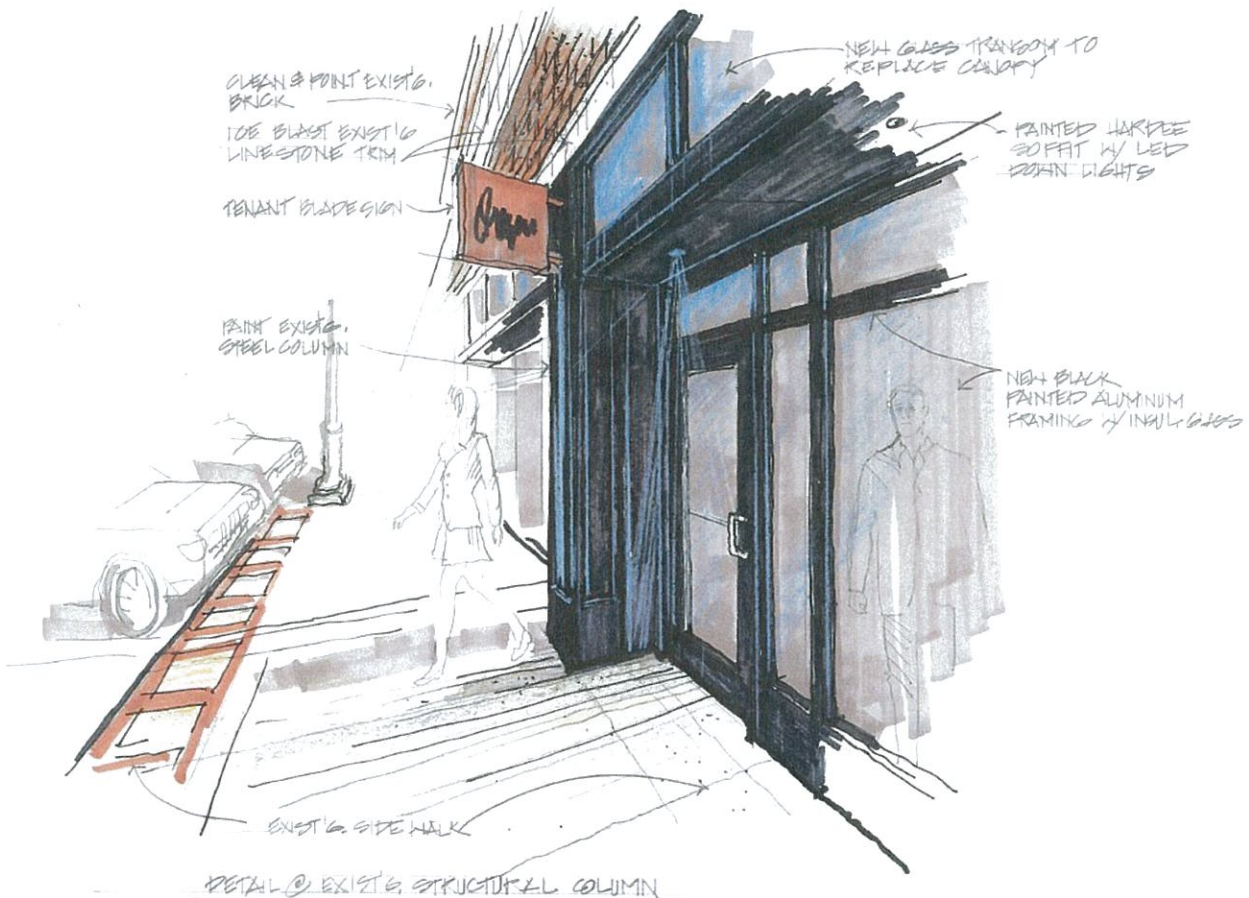 CLEAN & POINT EXIST'G.
BRICK
ICE BLAST EXIST'G
LIMESTONE TRIM
TENANT BLADE SIGN
PAINT EXIST'G.
STEEL COLUMN
NEW GLASS TRANSOM TO
REPLACE CANOPY
PAINTED HARDEE
SOFFIT W/ LED
DOWN LIGHTS
NEW BLACK
PAINTED ALUMINUM
FRAMING W/ INSUL. GLASS
EXIST'G. SIDE WALK
DETAIL @ EXIST'G. STRUCTURAL COLUMN